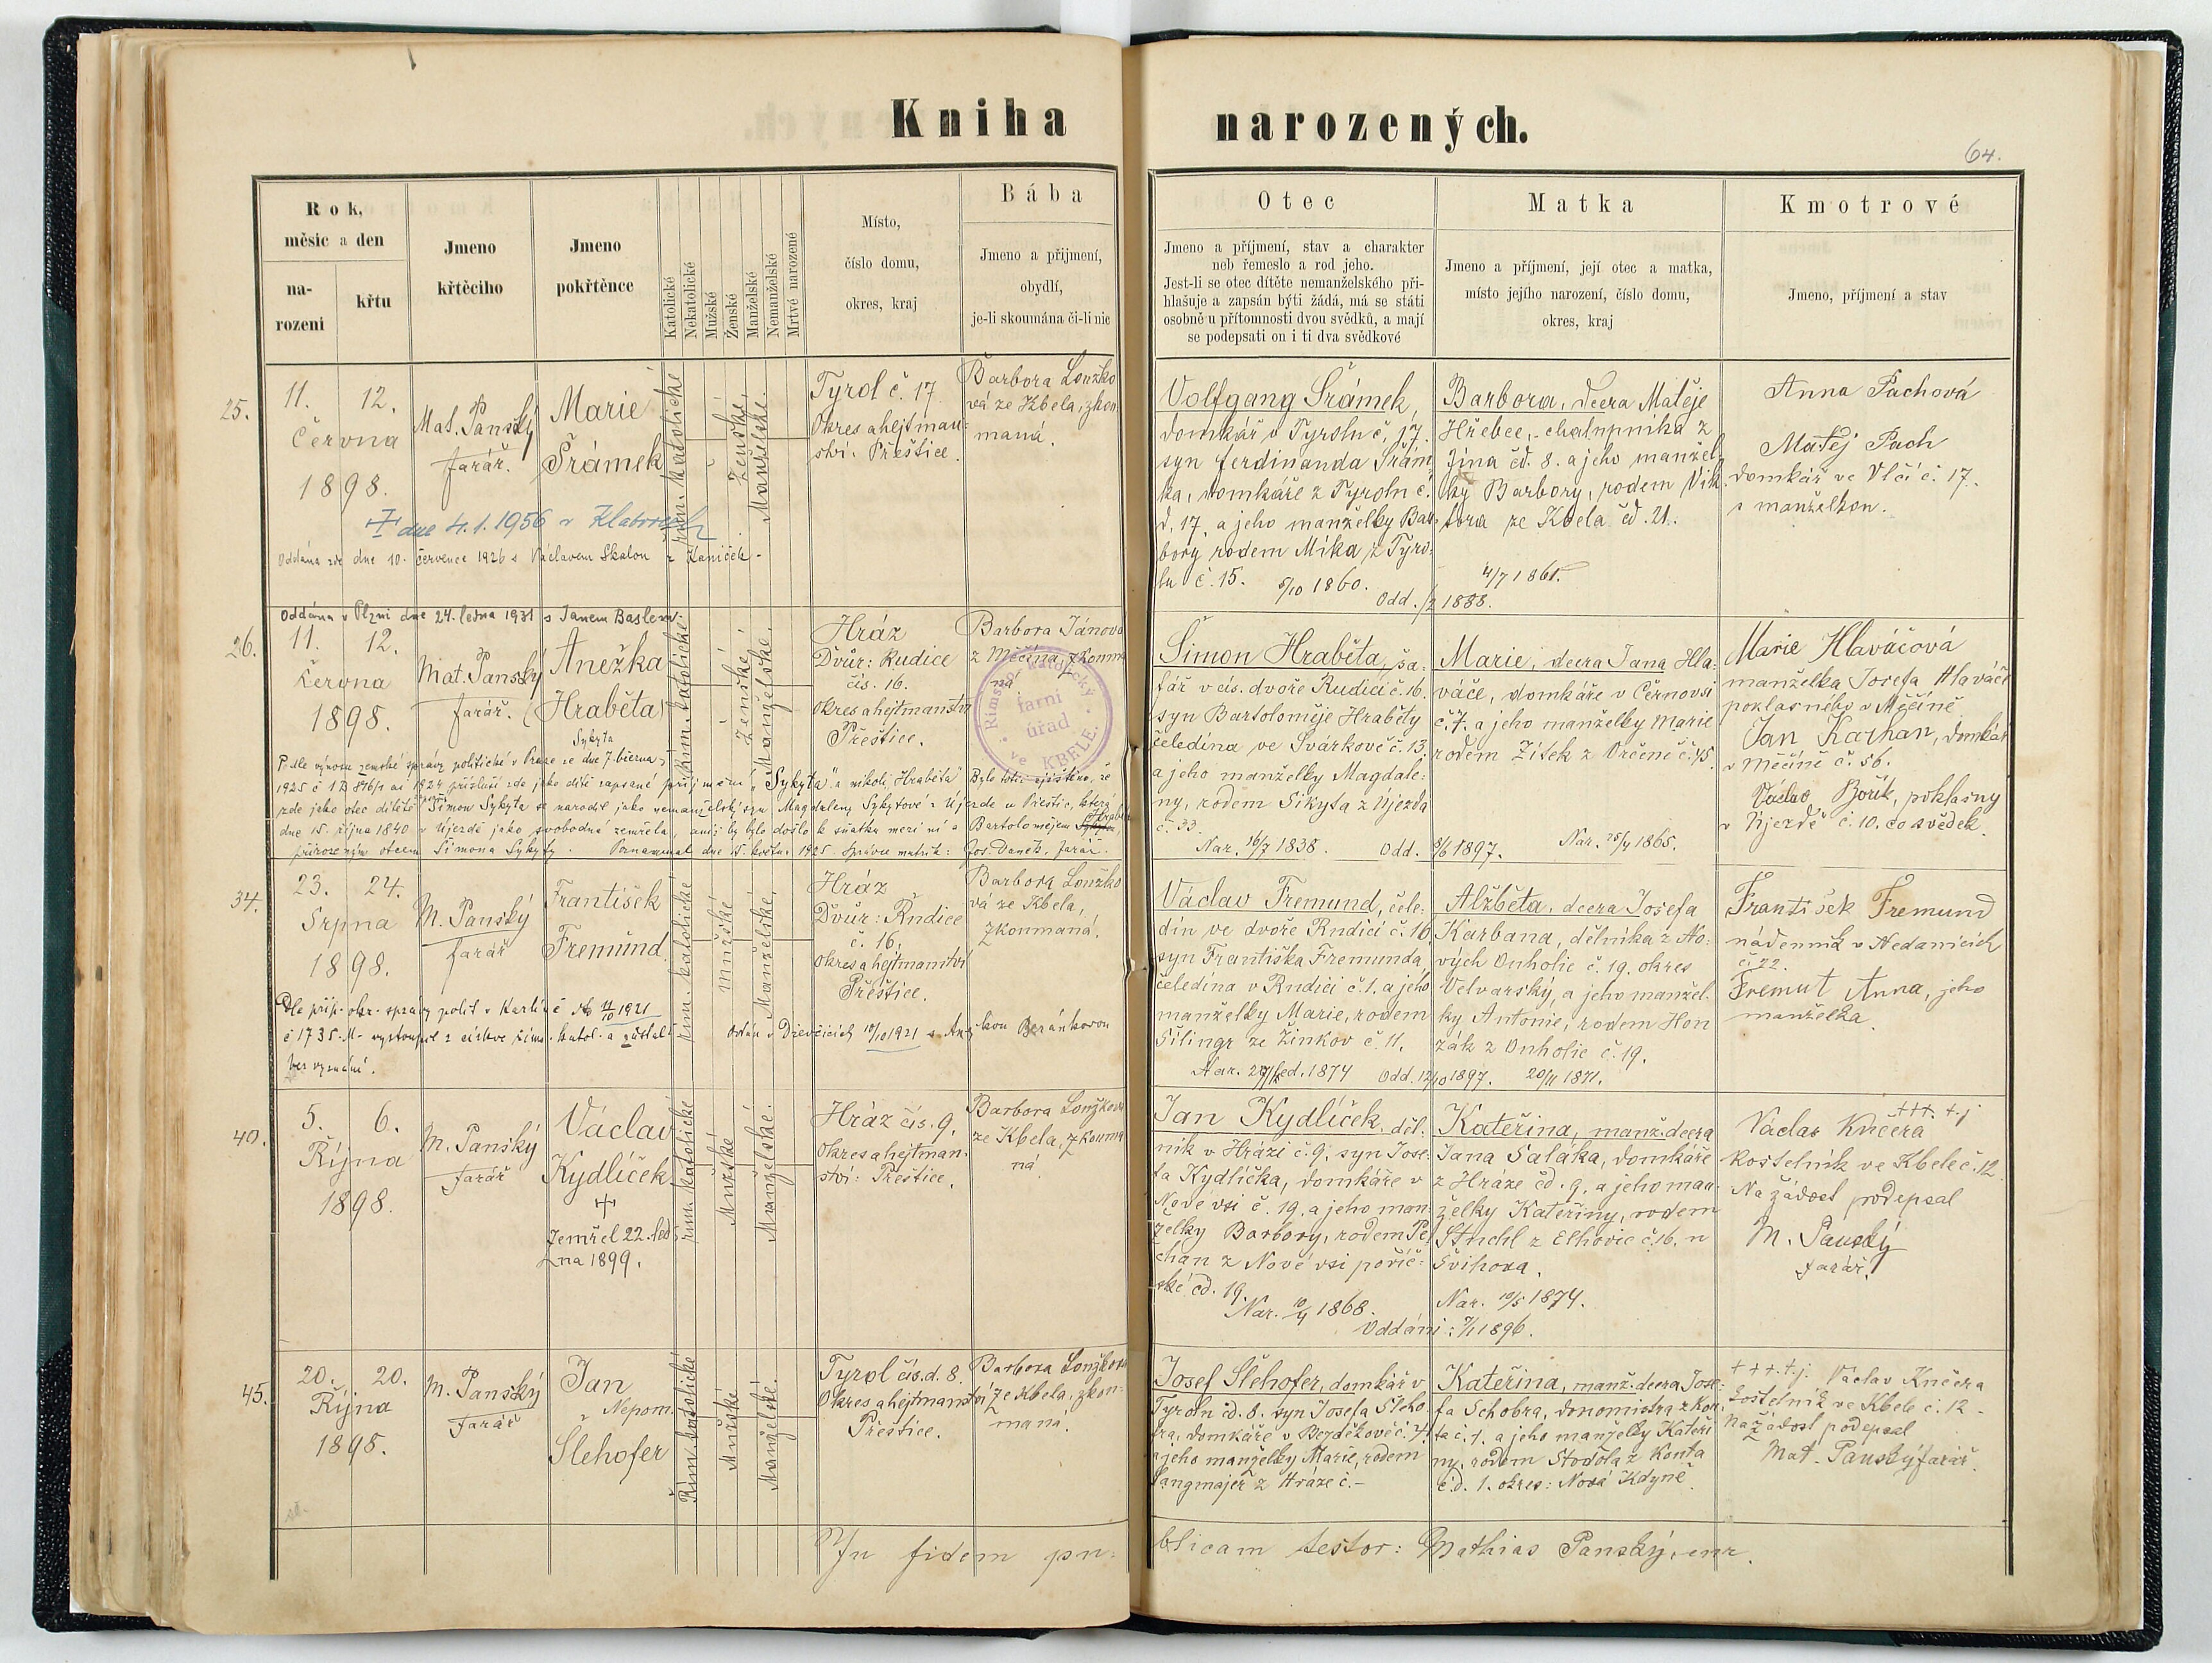 Kniha narozených.
64.
Rok,
měsíc a den
na-
rozeni
křtu
Jmeno
křtěcího
Jmeno
pokřtěnce
Katolické
Nekatolické
Mužské
Ženské
Manželské
Nemanželské
Mrtvé narozené
Místo,
číslo domu,
okres, kraj
Bába
Jmeno a přijmení,
obydlí,
je-li skoumána či-li nic
Otec
Jmeno a příjmení, stav a charakter
neb řemeslo a rod jeho.
Jest-li se otec dítěte nemanželského při-
hlašuje a zapsán býti žádá, má se státi
osobně u přítomnosti dvou svědků, a mají
se podepsati on i ti dva svědkové
Matka
Jmeno a příjmení, její otec a matka,
místo jejího narození, číslo domu,
okres, kraj
Kmotrové
Jmeno, příjmení a stav
25.
11. 12.
Června
1898.
Mat. Panský
farář.
Marie
Šrámek
řím. katolické
Ženské
Manželské.
Tyrol č. 17
Okres a hejtman-
ství: Přeštice.
Barbora Loužko
vá ze Kbela, zkou
maná.
Volfgang Šrámek,
domkář v Tyrolu č. 17.
syn Ferdinanda Šrám
ka, domkáře z Tyrolu č.
d. 17. a jeho manželky Bar-
bory rodem Míka z Tyro-
lu č. 15. 5/10 1860.
Odd. /2 1888.
Barbora, dcera Matěje
Hřebce, chalupníka z
Jína čd. 8. a jeho manžel-
ky Barbory, rodem Vik
tora ze Kbela čd. 21.
4/7 1861.
Anna Pachová
Matěj Pach
domkář ve Vlčí č. 17.
s manželkou.
† dne 4.1.1956 v Klatovech
Oddána zde dne 10. července 1926 s Václavem Skalou z Kaniček.
Oddána v Plzni dne 24. ledna 1931 s Janem Baslem.
26.
11. 12.
Června
1898.
Mat. Panský
farář.
Anežka
(Hraběta)
Sykyta
Řím. katolické.
Ženské
Manželské.
Hráz
Dvůr: Rudice
čís. 16.
Okres a hejtmanství
Přeštice.
Barbora Jánová
z Měčína, zkouma
ná.
Římsko-katolický farní úřad ve KBELE.
Šimon Hraběta, ša-
fář v cís. dvoře Rudici č. 16.
syn Bartoloměje Hraběty
čeledína ve Svárkově č. 13.
a jeho manželky Magdale-
ny, rodem Sikyta z Újezda
č. 33.
Nar. 16/7 1838. Odd. 8/6 1897.
Marie, dcera Jana Hla-
váče, domkáře v Černovsi
č. 7. a jeho manželky Marie
rodem Zítek z Vrčeně č. 45.
Nar. 25/4 1865.
Marie Hlaváčová
manželka Josefa Hlaváče
poklasného v Měčíně
Jan Karhan, domkář
v Měčíně č. 56.
Václav Bořík, poklasný
v Újezdě č. 10. co svědek.
Podle výnosu zemské správy politické v Praze ze dne 7. března
1925 přísluší zde jako dítě zapsané příjmení „Sykyta" a nikoli „Hraběta" Bylo totiž zjištěno, že
zde jako otec dítěte Šimon Sykyta se narodil jako nemanželský syn Magdaleny Sykytové z Újezde u Přeštic, která
dne 15. října 1840 v Újezdě jako svobodná zemřela, aniž by bylo došlo k sňatku mezi ní a Bartolomějem Hrabětou
přirozeným otcem Šimona Sykyty. Poznamenal dne 15. května 1925. Správce matrik: Jos. Daněk, farář.
34.
23. 24.
Srpna
1898.
M. Panský
farář
František
Fremund.
řím. katolické
mužské
Manželské.
Hráz
Dvůr: Rudice
č. 16.
Okres a hejtmanství
Přeštice.
Barbora Loužko
vá ze Kbela,
zkoumaná.
Václav Fremund, čele-
dín ve dvoře Rudici č. 16
syn Františka Fremunda,
čeledína v Rudici č. 1. a jeho
manželky Marie, rodem
Šilingr ze Žinkov č. 11.
Odd. 12/10 1897.
Alžběta, dcera Josefa
Karbana, dělníka z No-
vých Ouholic č. 19. okres
Velvarský, a jeho manžel-
ky Antonie, rodem Hon
zák z Ouholic č. 19.
20/11 1871.
František Fremund
nádenník v Nedanicích
č. 22.
Fremut Anna, jeho
manželka
Dle příp. okr. správy polit v Karlíně 1921
č 1735-M- vystoupil z církve říms. katol. a zůstal
bez vyznání.
Oddán v Dřevčicích 1921 s Anežkou Beránkovou
40.
5. 6.
Října
1898.
M. Panský
farář
Václav
Kydlíček
†
Zemřel 22. led
na 1899.
řím. katolické
Mužské
Manželské.
Hráz čís. 9.
Okres a hejtman-
ství: Přeštice.
Barbora Loužková
ze Kbela, zkouma
ná.
Jan Kydlíček, děl-
ník v Hrázi č. 9; syn Jose-
fa Kydlíčka, domkáře v
Nové vsi č. 19. a jeho man-
želky Barbory, rodem Pe
chan z Nové vsi poříč-
ské čd. 19.
Nar. 10/4 1868.
Oddáni: 7/1 1896.
Kateřina, manž. dcera
Jana Saláka, domkáře
z Hráze čd. 9. a jeho man-
želky Kateřiny, rodem
Stuchl z Elhovic č. 16. u
Švihova.
Nar. 10/5 1874.
+++. t. j.
Václav Kučera
kostelník ve Kbele č. 12.
Na žádost podepsal
M. Panský
farář.
45.
20. 20.
Října
1898.
M. Panský
farář
Jan
Nepom.
Šlehofer
Řím. katolické
Mužské
Manželské.
Tyrol čís. d. 8.
Okres a hejtmanství
Přeštice.
Barbora Loužková
ze Kbela, zkou-
maná.
Josef Šlehofer, domkář v
Tyrolu čd. 8. syn Josefa Šleho-
fra, domkáře v Bezděkově č. 4.
a jeho manželky Marie, rodem
Langmajer z Hráze č. –
Kateřina, manž. dcera Jose-
fa Schobra, z Kou-
ta č. 1. a jeho manželky Kateři
ny, rodem Stodola z Kouta
č. d. 1. okres: Nová Kdyně.
+++. t. j. Václav Kučera
kostelník ve Kbele č. 12 –
Na žádost podepsal
Mat. Panský farář.
In fidem pu-
blicam testor: Mathias Panský,